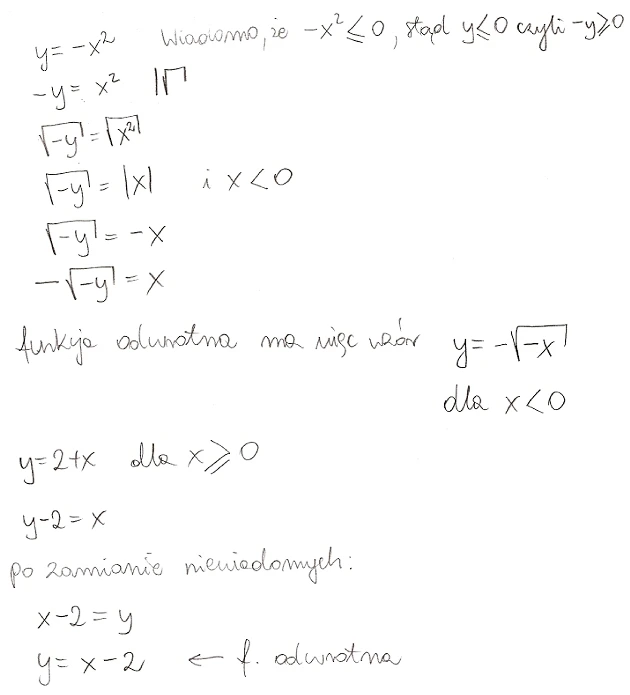 y = -x² Wiadomo, że -x² ≤ 0, stąd y ≤ 0 czyli -y ≥ 0
-y = x² |√
√-y = √x²
√-y = |x| i x < 0
√-y = -x
-√-y = x
funkcja odwrotna ma więc wzór y = -√-x
dla x < 0
y = 2+x dla x ≥ 0
y-2 = x
po zamianie niewiadomych:
x-2 = y
y = x-2 ← f. odwrotna